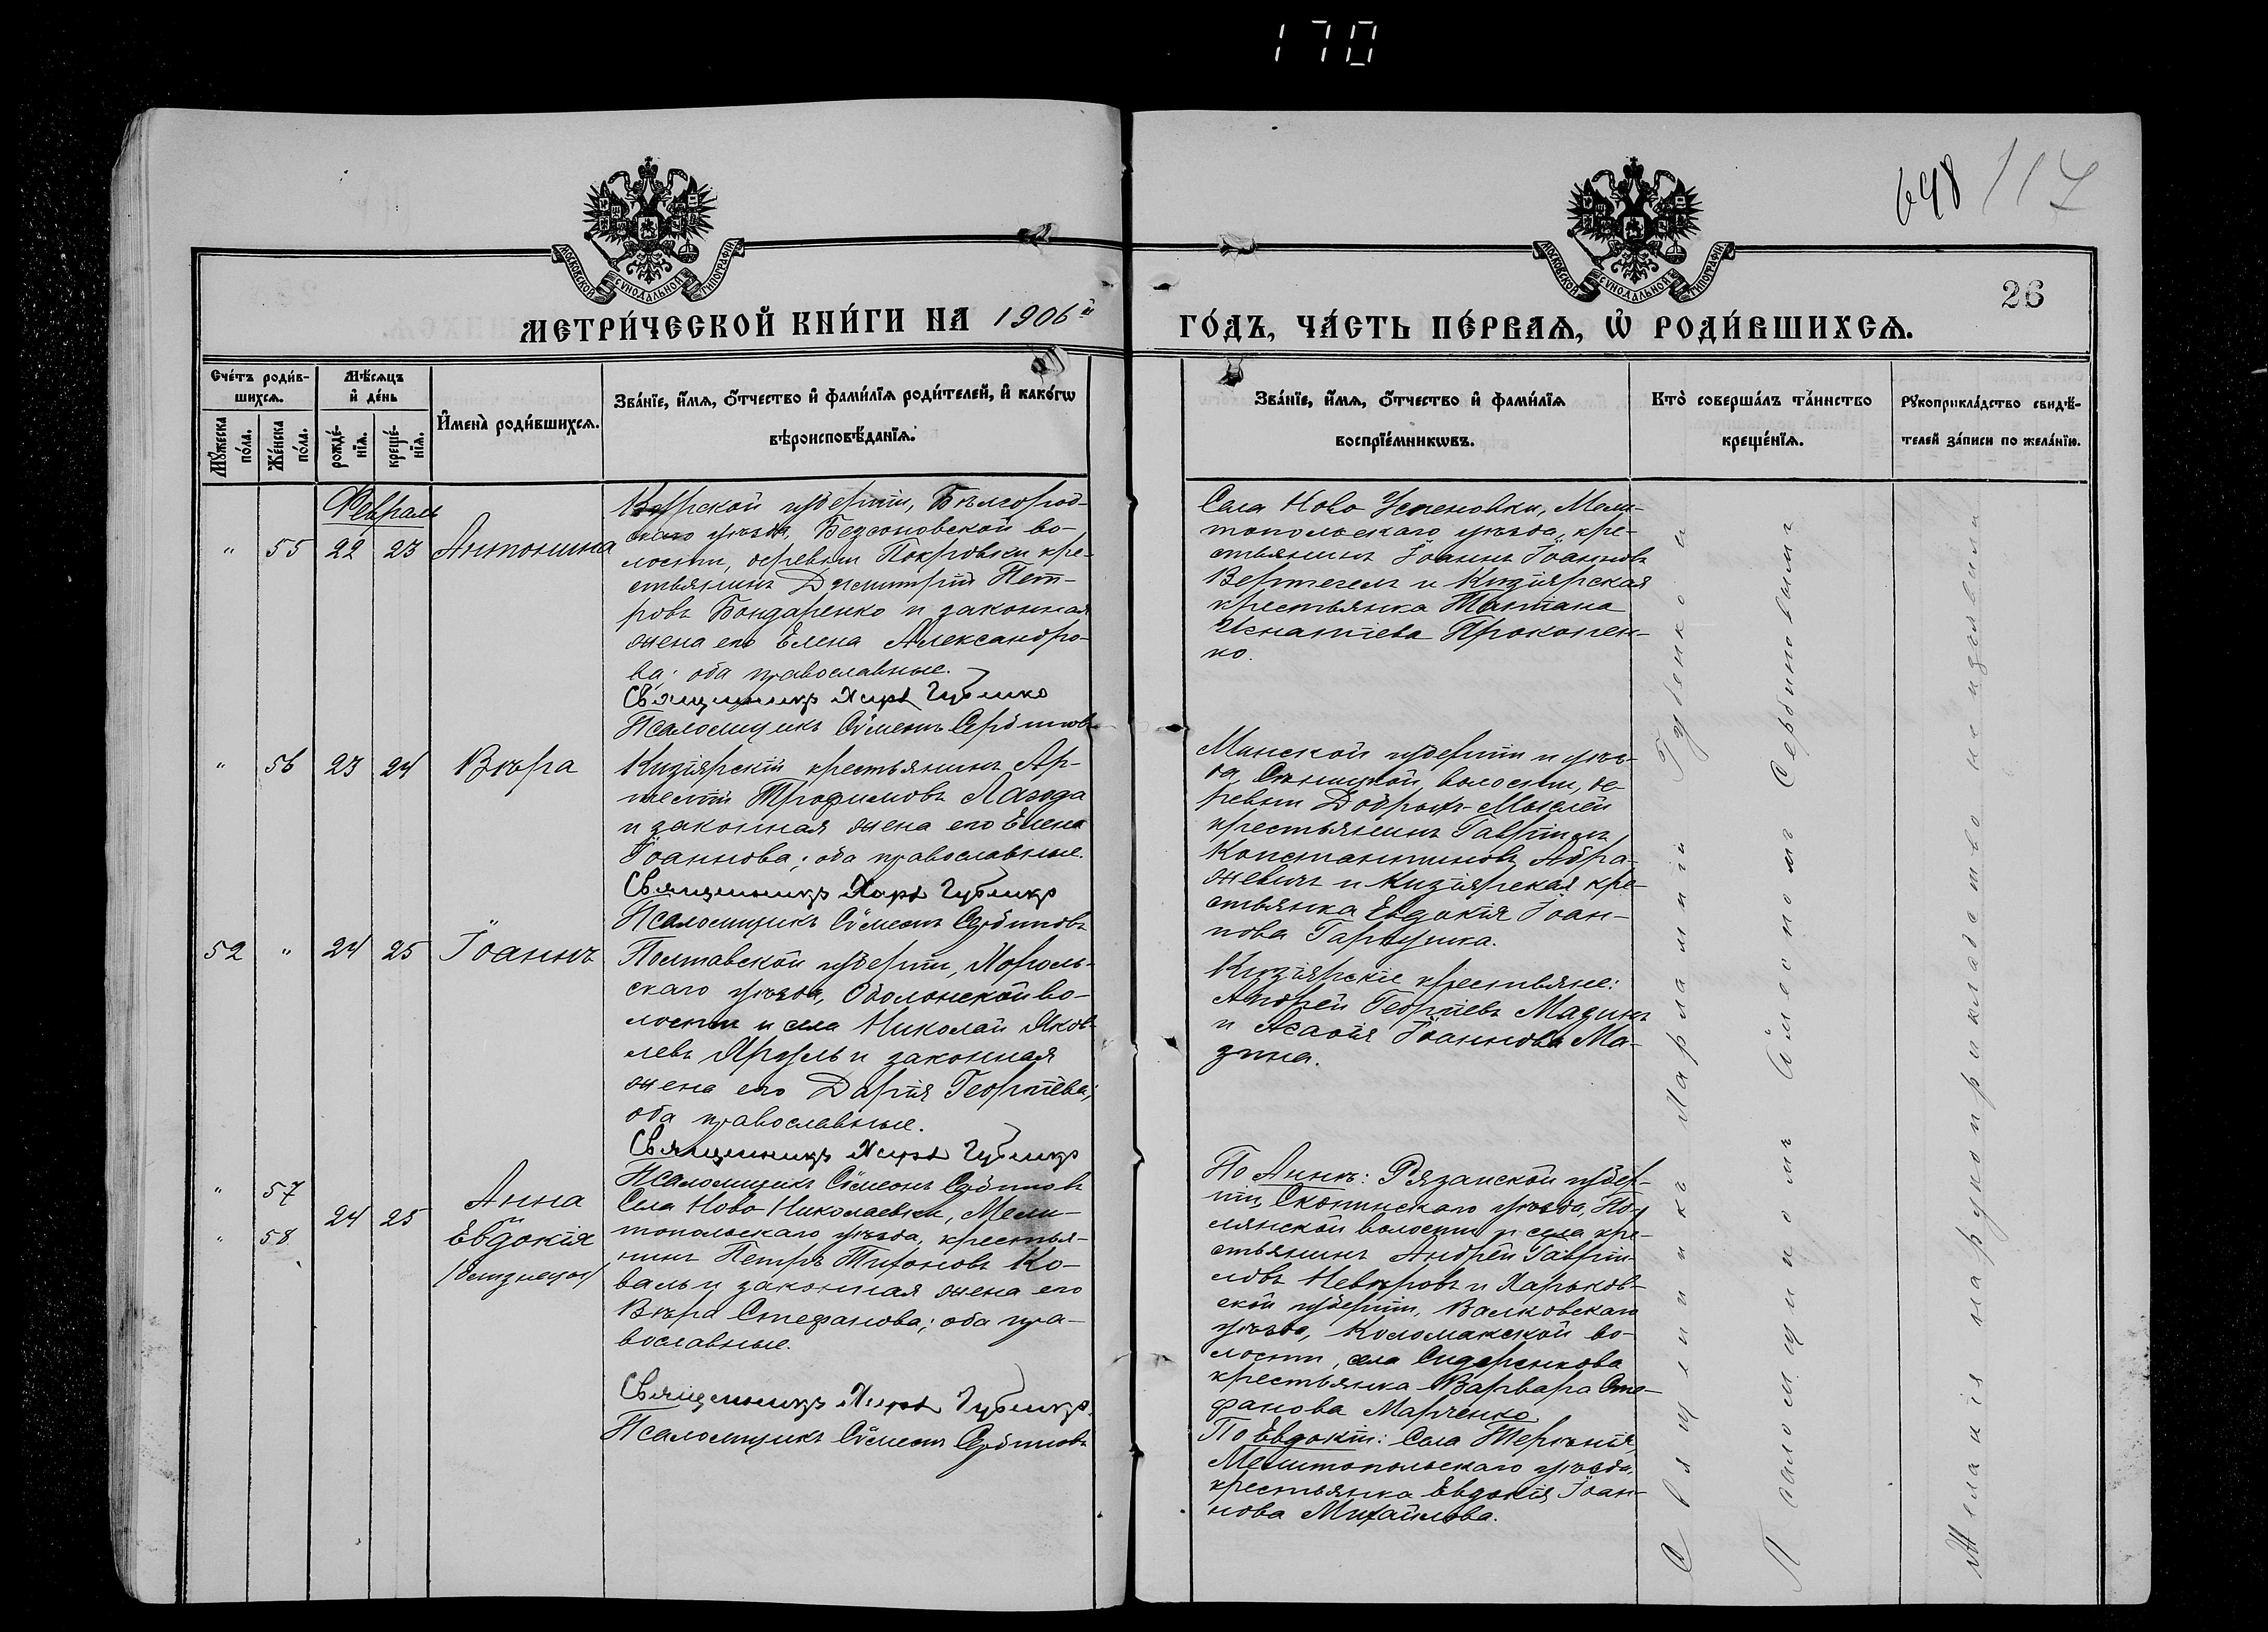 170
648 117
26
МОСКОВСКОЙ СѴНОДАЛЬНОЙ ТИПОГРАФІИ
МОСКОВСКОЙ СѴНОДАЛЬНОЙ ТИПОГРАФІИ
МЕТРИ́ЧЕСКОЙ КНИ́ГИ НА 1906й
ГО́ДЪ, ЧА́СТЬ ПЕ́РВАѦ, Ѡ҆ РОДИ́ВШИХСѦ.
Сче́тъ роди́в-
шихсѧ.
Мꙋ́жеска по́ла.
Же́нска по́ла.
Мѣ́сѧцъ
и҆ де́нь
рожде́-
нїѧ.
креще́-
нїѧ.
И҆мена̀ роди́вшихсѧ.
Зва́нїе, и҆́мѧ, ѻ҆́тчество и҆ фами́лїѧ роди́телей, и҆ како́гѡ
вѣроисповѣ́данїѧ.
Зва́нїе, и҆́мѧ, ѻ҆́тчество и҆ фами́лїѧ
воспрїе́мникѡвъ.
Кто̀ соверша́лъ та́инство
креще́нїѧ.
Рꙋкоприкла́дство свидѣ́-
телей за́писи по жела́нїю.
Февраль
" 55 22 23 Антонина
Курской губерніи, Бѣлгород-
скаго уѣзда, Безсоновской во-
лости, деревни Покровки кре-
стьянинъ Димитрій Пет-
ровъ Бондаренко и законная
жена его Елена Александро-
ва; оба православные.
Священникъ Харл. Губенко
Псаломщикъ Сѵмеонъ Сербиновъ
Села Ново Успеновки, Мели-
топольскаго уѣзда, кре-
стьянинъ Іоаннъ Іоанновъ
Вертегелъ и Кизіярская
крестьянка Татіана
Игнатіева Прокопен-
ко.
" 56 23 24 Вѣра
Кизіярскій крестьянинъ Ар-
темій Трофимовъ Лагода
и законная жена его Елена
Іоаннова; оба православные.
Священникъ Харл. Губенко
Псаломщикъ Сѵмеонъ Сербиновъ
Минской губерніи и уѣз-
да, Сѣницкой волости, де-
ревни Добрыхъ-Мыслей
крестьянинъ Гавріилъ
Константиновъ Абра-
жевичъ и Кизіярская кре-
стьянка Евдокія Іоан-
нова
52 " 24 25 Іоаннъ
Полтавской губерніи, Хороль-
скаго уѣзда, Оболонской во-
лости и села Николай Яков-
левъ и законная
жена его Дарія Георгіева;
оба православные.
Священникъ Харл. Губенко
Псаломщикъ Сѵмеонъ Сербиновъ
Кизіярскіе крестьяне:
Андрей Георгіевъ Мазинъ
и Агаѳія Іоаннова Ма-
зина.
" 57 Анна
и
24 25
" 58 Евдокія
/близнецы/
Села Ново Николаевки, Мели-
топольскаго уѣзда, крестья-
нинъ Петръ Тихоновъ Ко-
валь и законная жена его
Вѣра Стефанова; оба пра-
вославные.
Священникъ Харл. Губенко
Псаломщикъ Сѵмеонъ Сербиновъ
По Аннѣ: Рязанской губер-
ніи, Скопинскаго уѣзда, По-
лянской волости и села кре-
стьянинъ Андрей Гаврии-
ловъ и Харьков-
ской губерніи, Валковскаго
уѣзда, Коломакской во-
лости, села Сидоренкова
крестьянка Варвара Сте-
фанова Марченко.
По Евдокіи: Села Терпѣнія,
Мелитопольскаго уѣзда,
крестьянка Евдокія Іоан-
нова Михайлова.
Священникъ Харлампій Губенко и
Псаломщикомъ Сѵмеономъ Сербиновымъ
Желанія на рукоприкладство не изъявили